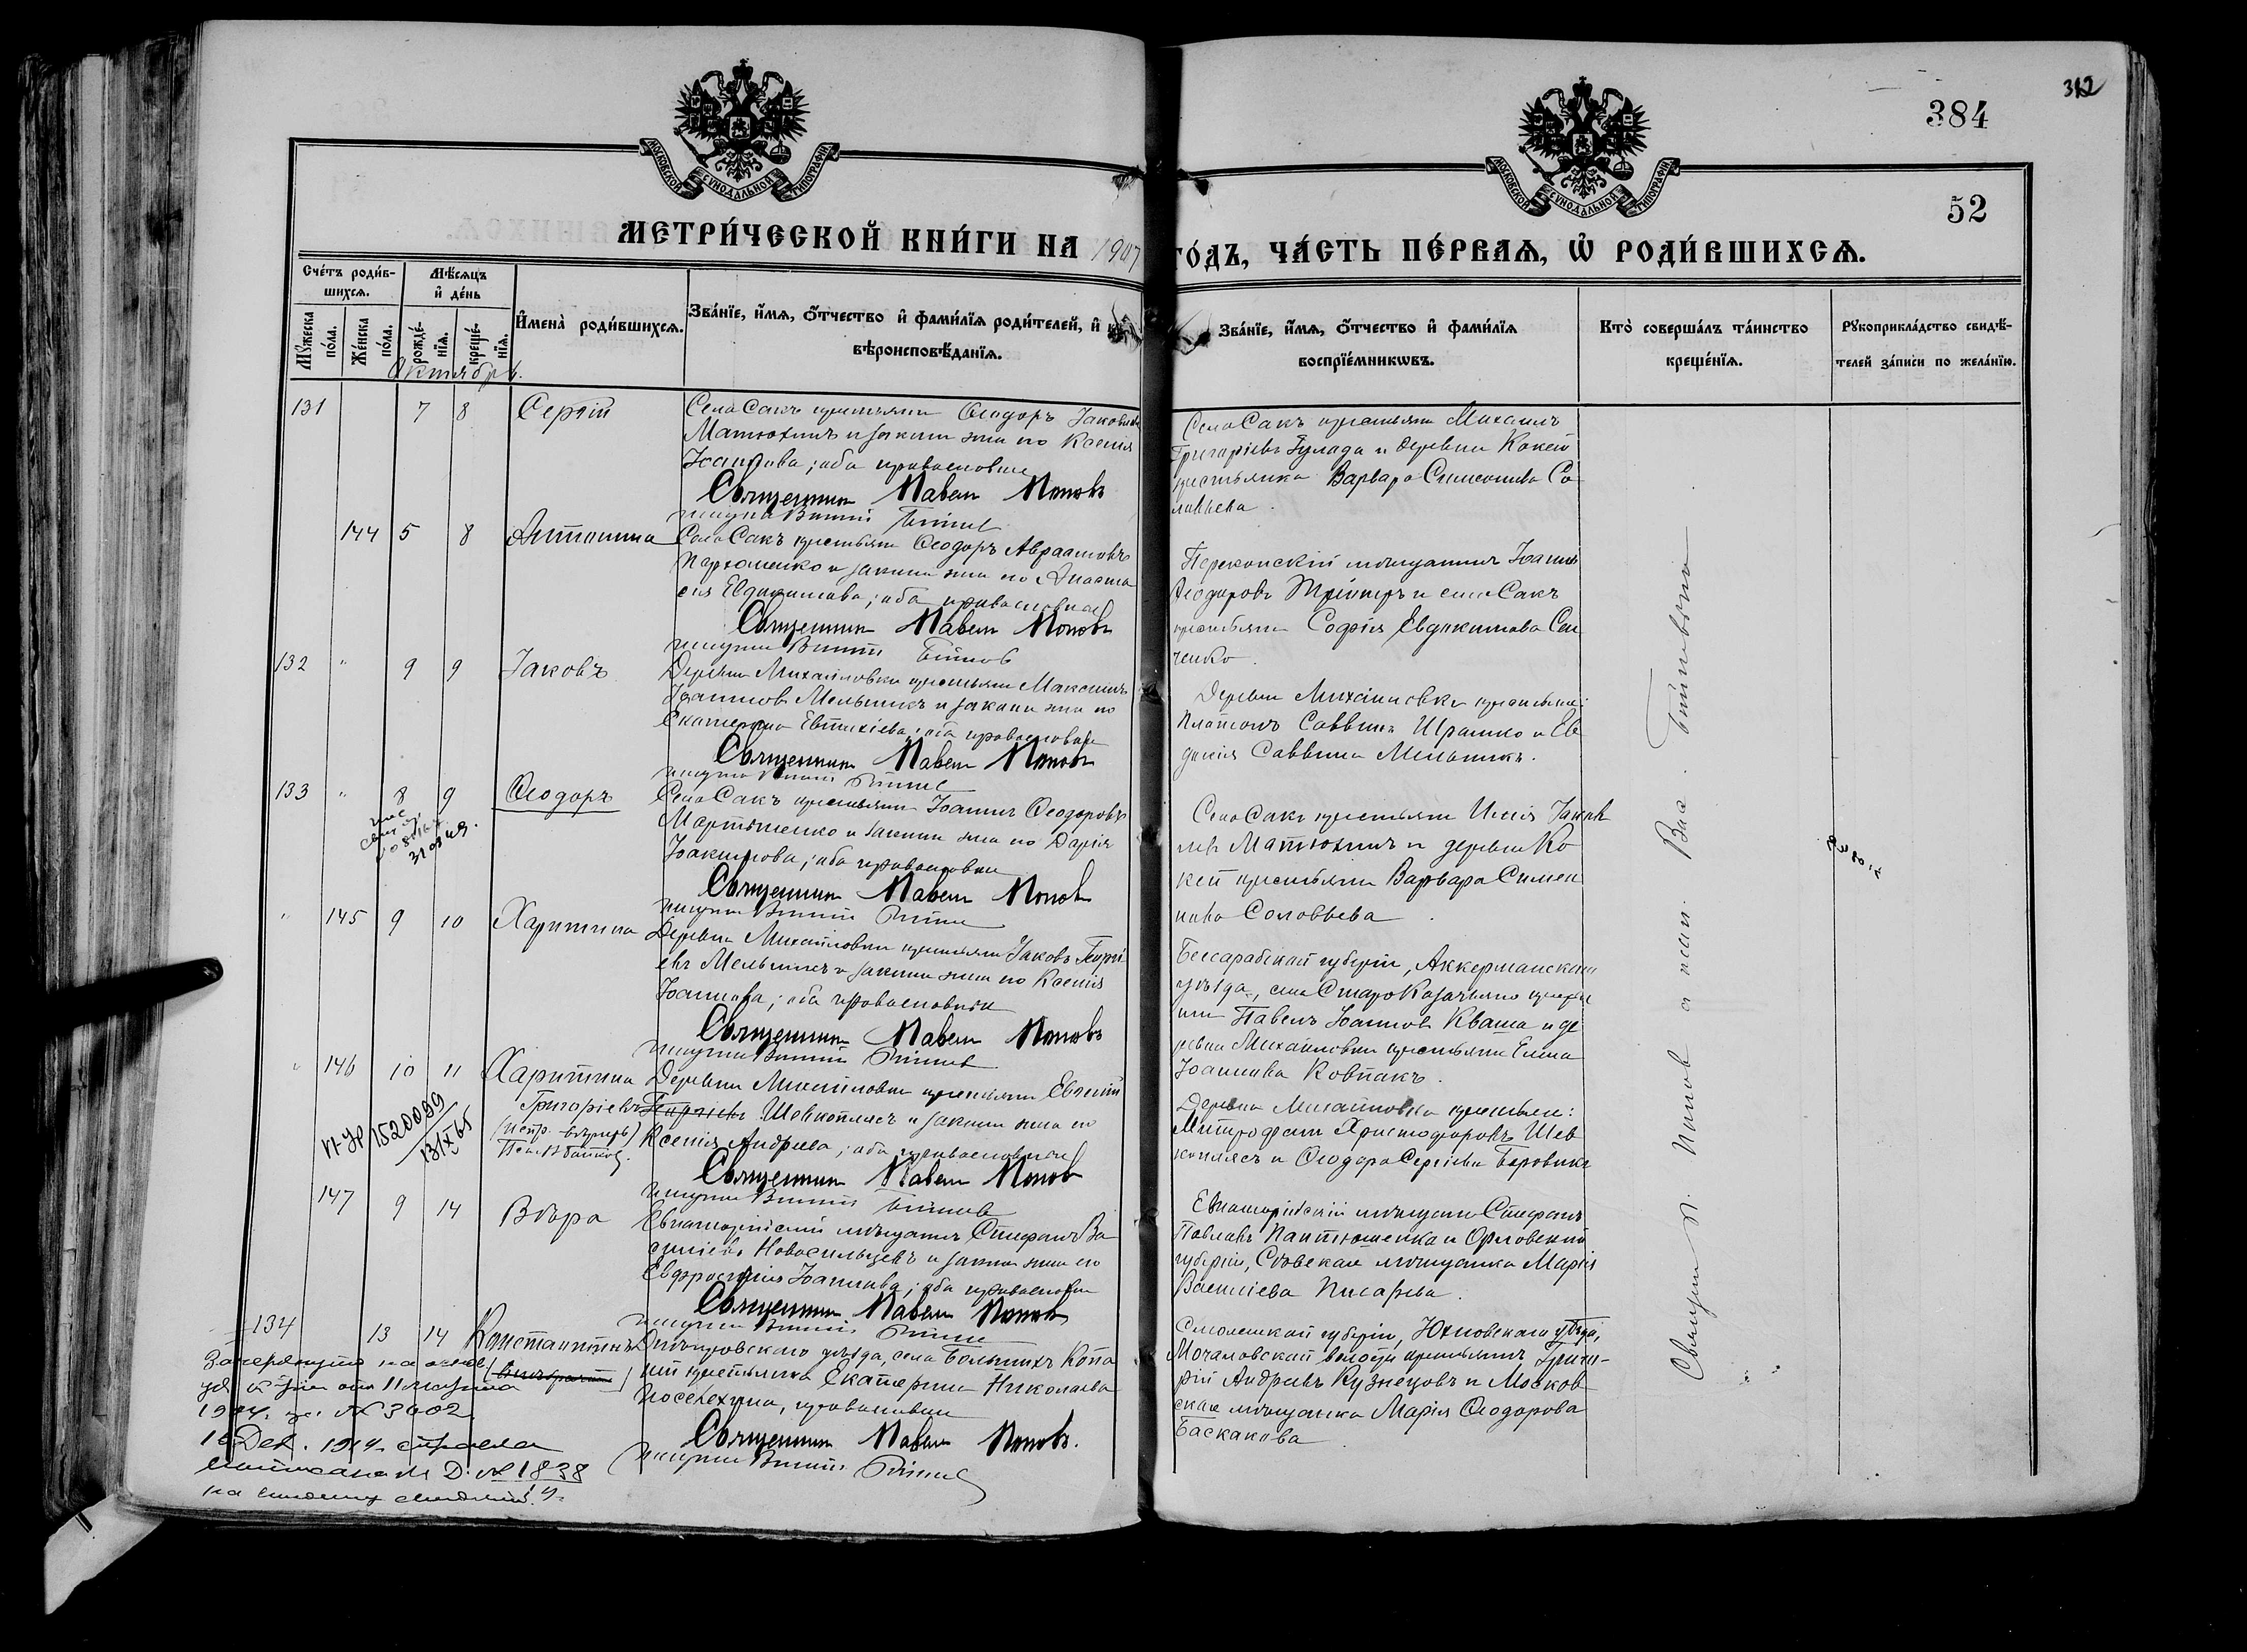 312
384
52
МОСКОВСКОЙ СѴНОДАЛЬНОЙ ТИПОГРАФІИ
МОСКОВСКОЙ СѴНОДАЛЬНОЙ ТИПОГРАФІИ
МЕТРИ́ЧЕСКОЙ КНИ́ГИ НА 1907 ГО́ДЪ, ЧА́СТЬ ПЕ́РВАѦ, Ѡ҆ РОДИ́ВШИХСѦ.
Сче́тъ роди́в-
шихсѧ.
Мꙋ́жеска по́ла.
Же́нска по́ла.
Мѣ́сѧцъ и҆ де́нь
рожде́-
нїѧ.
креще́-
нїѧ.
И҆мена̀ роди́вшихсѧ.
Зва́нїе, и҆́мѧ, ѻ҆́тчество и҆ фами́лїѧ роди́телей, и҆
вѣроисповѣ́данїѧ.
Зва́нїе, и҆́мѧ, ѻ҆́тчество и҆ фами́лїѧ
воспрїе́мникѡвъ.
Кто̀ соверша́лъ та́инство
креще́нїѧ.
Рꙋкоприкла́дство свидѣ́-
телей за́писи по жела́нїю.
Октябрь.
131 7 8 Сергій
Села Сакъ крестьянин Ѳеодоръ Іаковлевъ
Матюхинъ и законн жена его Ксенія
Іоаннова; оба православные
Священник Павел Попов
Села Сакъ крестьянин Михаилъ
Григоріевъ Гулада и деревни Кокей
крестьянка Варвара Симеонова Со
ловьева.
144 5 8 Антонина
Села Сакъ крестьянин Ѳеодоръ Авраамовъ
Пархоменко и законн жена его Анаста
сія Евдокимова; оба православные
Священник Павел Попов
Перекопскій мещанинъ Іоаннъ
Ѳеодоровъ и села Сакъ
крестьянка Софія Евдокимова Сен
ченко.
132 " 9 9 Іаковъ
Деревни Михайловки крестьянин Максимъ
Іоаннов Мельникъ и законн жена его
Екатерина Евтихіева; оба православные
Священник Павел Попов
Деревни Михайловки крестьяне:
Платонъ Саввинъ Ирашко и Ев
докія Саввина Мельникъ.
133 " 8 9 Ѳеодоръ
31 03 49.
Села Сакъ крестьянин Іоаннъ Ѳеодоровъ
Мартыненко и законн жена его Дарія
Іоакимова; оба православные
Священник Павел Попов
Села Сакъ крестьянин Илія Іаков
левъ Матюхинъ и деревни Ко
кей крестьянка Варвара Симео
нова Соловьева.
" 145 9 10 Харитина
Деревни Михайловки крестьянин Іаковъ Георгі
евъ Мельникъ и законн жена его Ксенія
Іоаннова; оба православные
Священник Павел Попов
Бессарабской губерніи, Аккерманскаго
уѣзда, села Староказачьяго крестья
нин Павелъ Іоаннов Кваша и де
ревни Михайловки крестьянка Елена
Іоаннова Ковпакъ.
" 146 10 11 Харитина
1520099
13/IX 65
Григоріевъ
Деревни Михайловки крестьянин Евѳимій
Георгіевъ Шевкоплясъ и законн жена его
Ксенія Андреева; оба православные
Священник Павел Попов
Деревни Михайловки крестьяне:
Митрофанъ Христофоровъ Шев
коплясъ и Ѳеодора Сергіева Боровикъ
147 9 14 Вѣра
Евпаторійскій мѣщанинъ Стефанъ Ва
силіевъ Новосильцевъ и законн жена его
Евфросинія Іоаннова; оба православные
Священник Павел Попов
Евпаторійскій мѣщанинъ Стефанъ
Павловъ Пантюшенко и Орловской
губерніи, Сѣвская мѣщанка Марія
Васильева Писарева.
134 13 14 Константинъ
Днѣпровскаго уѣзда, села Большихъ Копа
ней крестьянка Екатерина Николаева
Поселехина, православная
Священник Павел Попов.
Смоленской губерніи, Юхновскаго уѣзда,
Мочаловской волости крестьянинъ Григо-
рій Андреевъ Кузнецовъ и Москов
ская мѣщанка Марія Ѳеодорова
Баскакова
№ 3602
16 Дек. 1914
№ 1838
Священник П. Попов и псал.